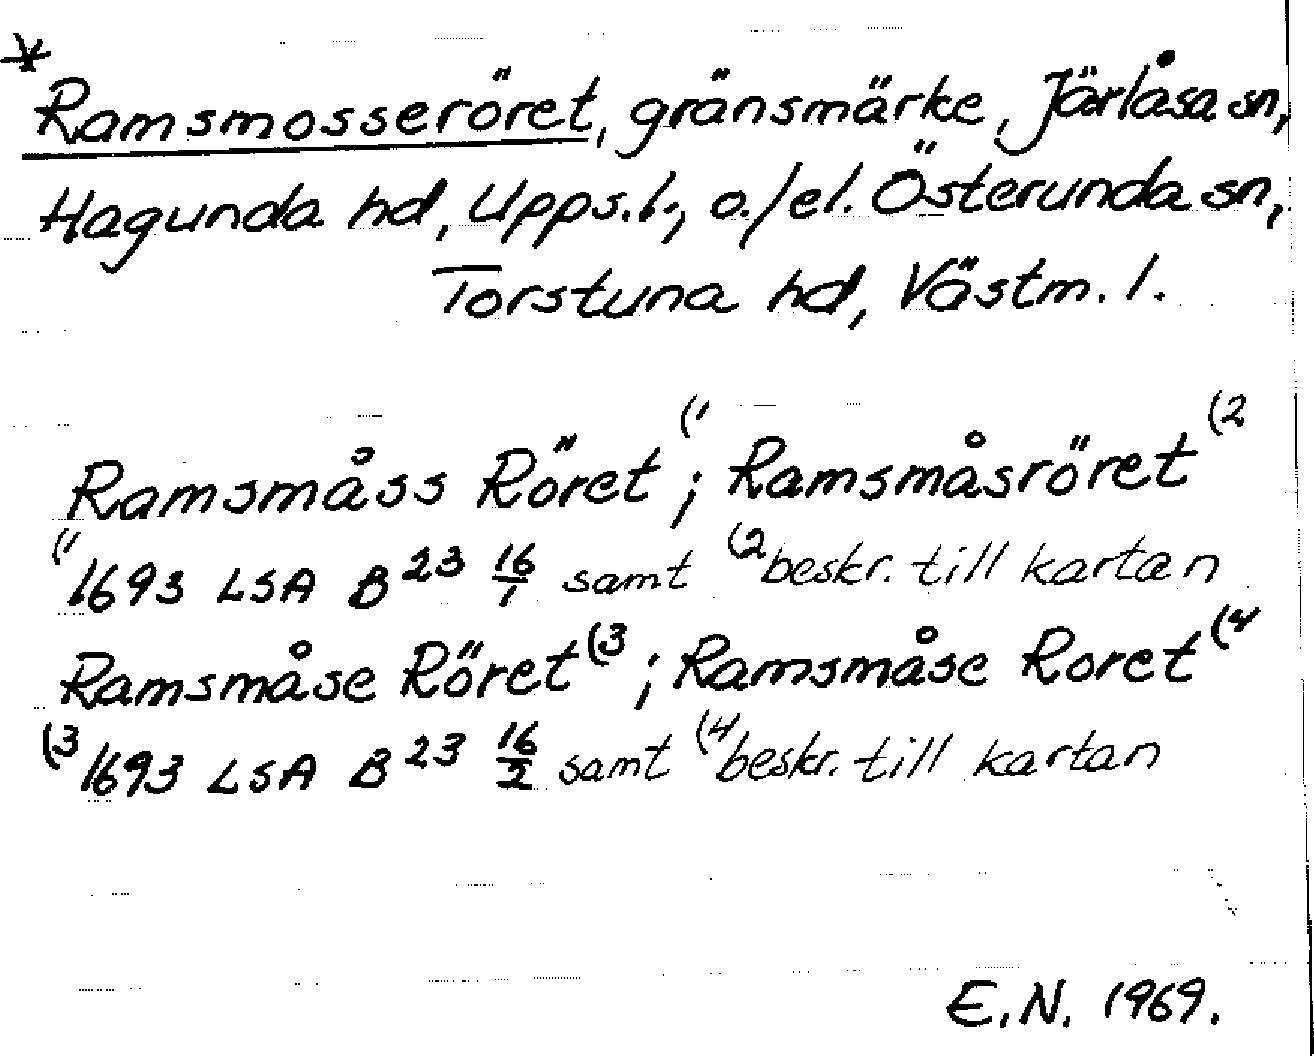 *
Ramsmosseröret, gränsmärke, Järlåsa sn,
Hagunda hd, Upps.l., o./el. Österunda sn,
Torstuna hd, Västm. l.
Ramsmåss Röret (1 ; Ramsmåsröret (2
(1 1693 LSA B 23 16/1 samt (2 beskr. till kartan
Ramsmåse Röret (3 ; Ramsmåse Roret (4
(3 1693 LSA B 23 16/2 samt (4 beskr. till kartan
E.N. 1969.